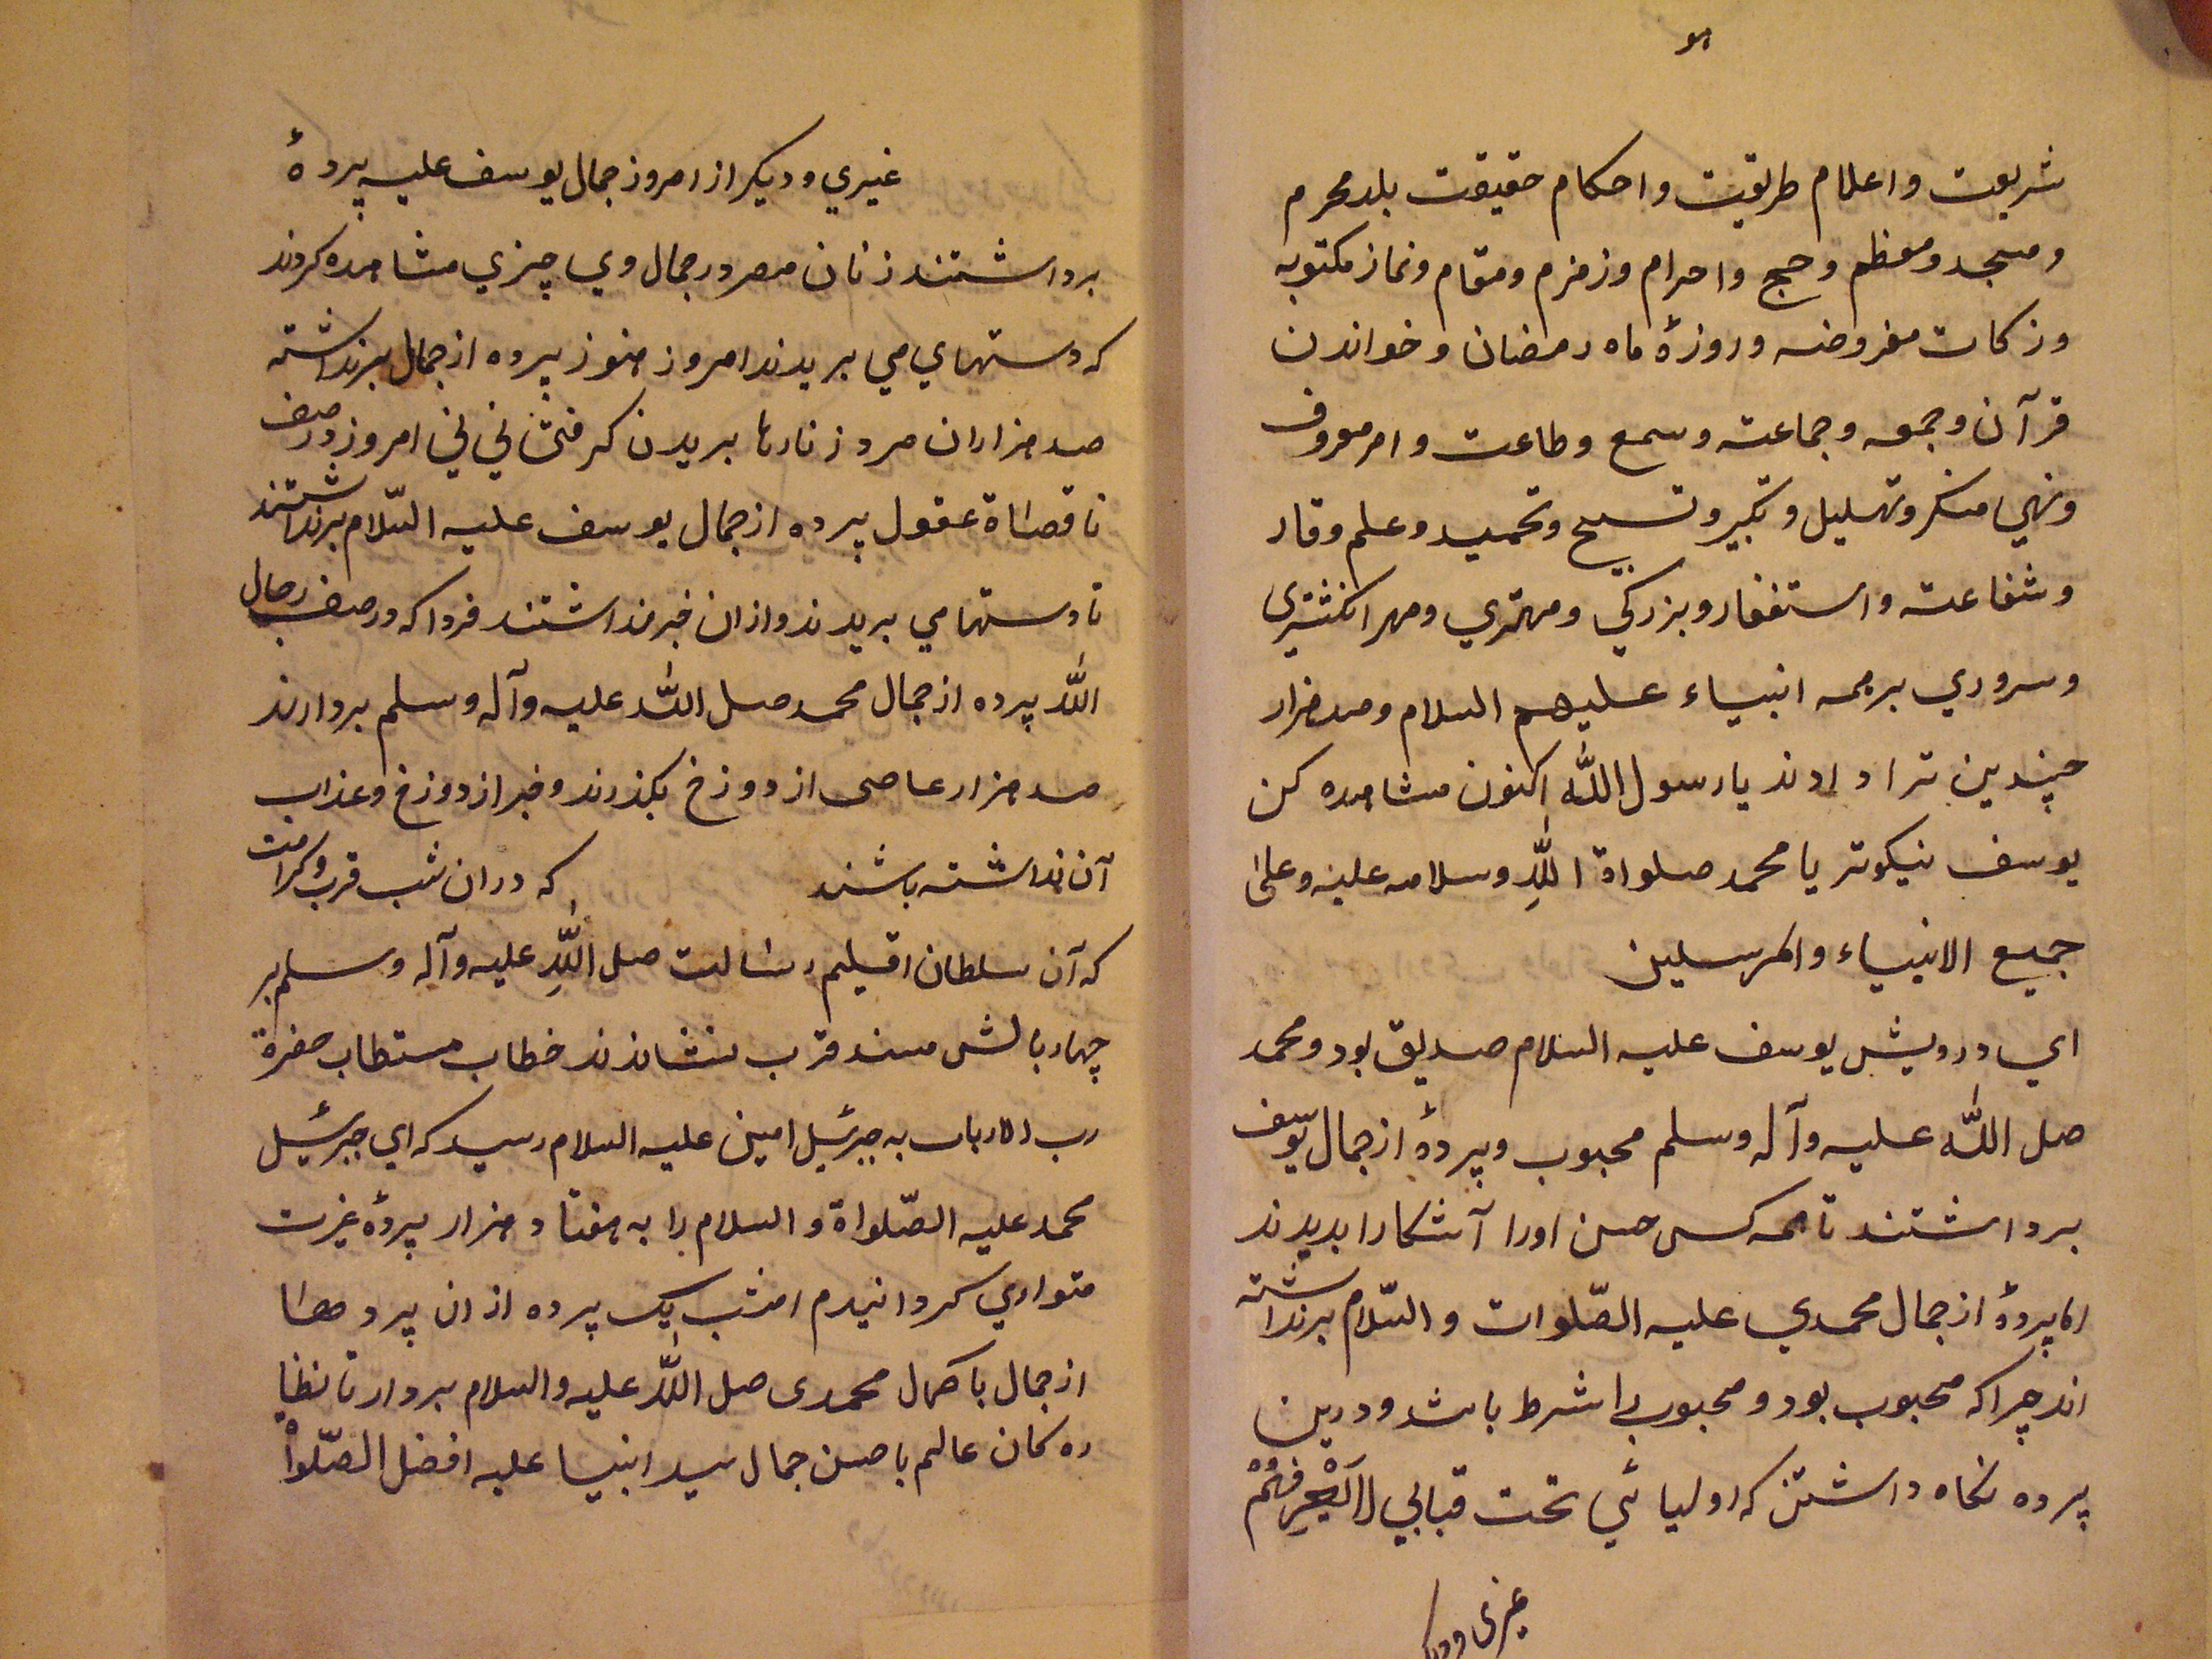 شريعت و اعلام طريقت و احكام حقيقت بلد محرم
و مسجد و معظم و حج و احرام و زمزم و مقام و نماز مكتوبه
و زكات مفروضه و روزهٔ ماه رمضان و خواندن
قرآن و جمعه و جماعت و سمع و طاعت و امر معروف
و نهي منكر و تهليل و تكبير و تسبيح و تحميد و علم و قار
و شفاعت و استغفار و بزركي و مهتري و مهر انكشتري
و سروري بر همه انبياء عليهم السلام و صد هزار
چندين ترا دادند يا رسول الله اكنون مشاهده كن
يوسف نيكوتر يا محمد صلواة اللهِ و سلامه عليه و على
جميع الانبياء و المرسلين
اي درويش يوسف عليه السلام صديق بود و محمد
صل الله عليه و آله و سلم محبوب و پردهٔ از جمال يوسف
برداشتند تا همه كس حسن او را آشكارا بديدند
اما پردهٔ از جمال محمدي عليه الصّلوات و السّلام برنداشته
اند چرا كه محبوب بود و محبوب را شرط باشد و درين
پرده نكاه داشتن كه اوليائي تحت قبابي لا يَعْرِفُهُمْ
غيرى و ديكر
غيري و ديكر از امروز جمال يوسف عليه پردهٔ
برداشتند زنان مصر در جمال وي چيزي مشاهده كردند
كه دستهاي مي بريدند امروز هنوز پرده از جمال برنداشته
صد هزاران مرد زنارها بريدن كرفتن ني ني امروز در صف
ناقصاة عقول پرده از جمال يوسف عليه السّلام برنداشتند
تا دستها مي بريدند و از ان خبر نداشتند فردا كه در صف رجال
الله پرده از جمال محمد صل الله عليه و آله و سلم بردارند
صد هزار عاصى از دوزخ بكذرند و خبر از دوزخ و عذاب
آن نداشته باشند كه در ان شب قرب و كرامت
كه آن سلطان اقليم رسالت صل اللهِ عليه و آله و سلم بر
چهار بالش مسند قرب بنشاندند خطاب مستطاب حضرة
رب الارباب به جبرئيل امين عليه السلام رسيد كه اي جبرئيل
محمد عليه الصّلواة و السلام را به هفتاد هزار پردهٔ غيرت
متواري كردانيدم امشب يك پرده از ان پردها
از جمال با كمال محمدى صل الله عليه و السلام بردار تا نظا
ره كان عالم با حسن جمال سيد انبيا عليه افضل الصّلواة